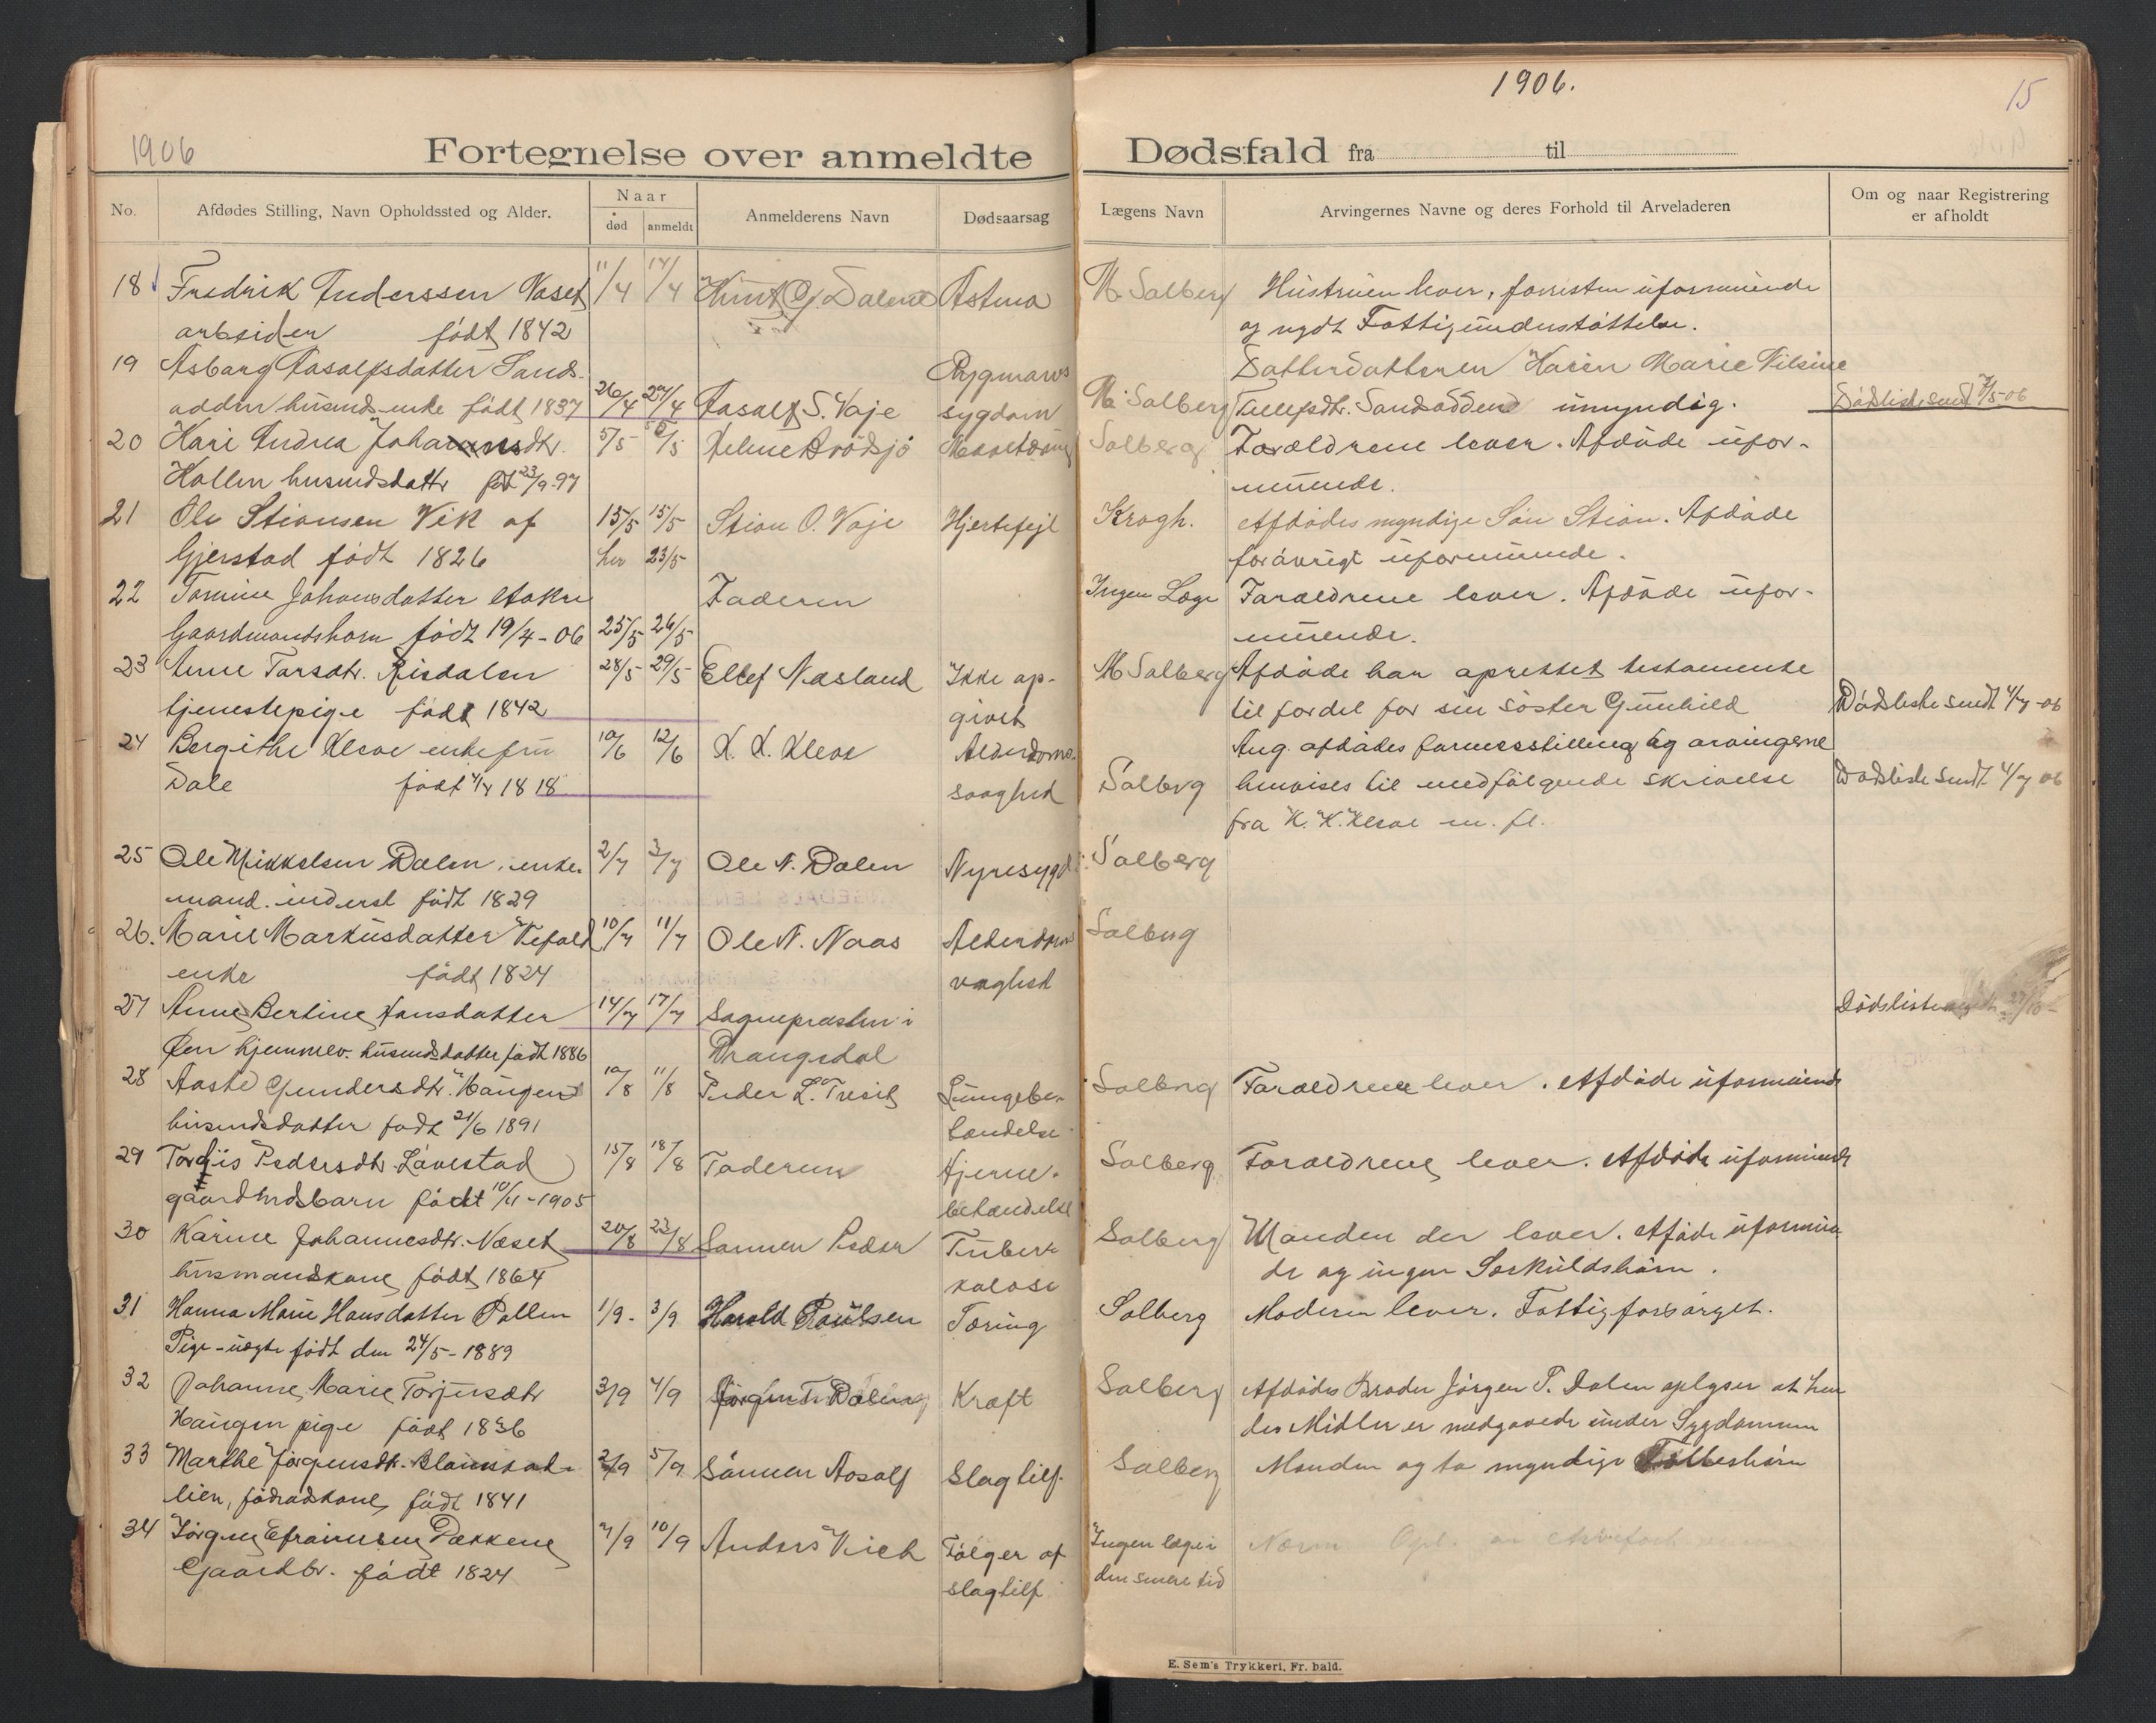 1906
1906.
15
Fortegnelse over anmeldte Dødsfald fra til
No.
Afdødes Stilling, Navn Opholdssted og Alder.
Naar
død
anmeldt
Anmelderens Navn
Dødsaarsag
Lægens Navn
Arvingernes Navne og deres Forhold til Arveladeren
Om og naar Registrering
er afholdt
18 Fredrik Anderssen Næset 11/4 14/4 Knut G. Dalene Astma M Solberg Hustruen lever, forresten uformuende
arbeider født 1842 og nydt Fattigunderstøttelse.
19 Asborg Aasalfsdatter Sands- Rygmarvs Datterdatteren Karen Marie Nilsine
odden husmds-enke født 1837 26/4 27/4 Aasalf S. Vøje sygdom M. Solberg Tellefsdtr. Sandsodden umyndig. Dødsliste sendt 7/5-06
20 Kari Andrea Johannsdtr. 5/5 8/5 Solberg Forældrene lever. Afdøde ufor-
Hollen husmdsdattr født 23/9-97 muende.
21 Ole Stiansen Vik af 13/5 15/5 Stian O. Vøje Hjertefejl Krogh. Afdødes myndige Søn Stian. Afdøde
Gjerstad født 1826 her 23/5 forøvrigt uformuende.
22 Tomine Johansdatter Faderen Ingen Læge Forældrene lever. Afdøde ufor-
Gaardmandsbarn født 19/4-06 25/5 26/5 muende.
23 Anne Tarsdtr. Risdalen 28/5 29/5 Ellef Næsland Ikke op- M Solberg Afdøde har oprettet testamente
tjenestepige født 1842 givet til fordel for sin søster Gunhild Dødsliste sendt 4/7-06
24 Bergithe Kleve enkefru 10/6 12/6 K. K. Kleve Alderdoms- Ang. afdødes formuesstilling og arvingerne
Dale født 4/4 1818 svaghed Solberg henvises til medfølgende skrivelse Dødsliste sendt 4/7 06
fra K. K. Kleve m. fl.
25 Ole Mikkelsen Dalen, enke- 2/7 3/7 Ole N. Dalen Nyresygd. Solberg
mand. inderst født 1829
26. Marie Markusdatter Vefald 10/7 11/7 Ole N. Naas Alderdoms Solberg
enke født 1824 svaghed
27 Anne Bertine Hansdatter 14/7 17/7 Sognepræsten i Dødsliste
Øen hjemmev. husmdsdatter født 1886 Drangedal
28 Aaste Gundersdtr. Haugen 10/8 11/8 Peder L. Tresit Lungebe- Solberg Forældrene lever. Afdøde uformuende
husmdsdatter født 21/6 1891 tændelse
29 Torgiis Pedersdtr. Løvestad 15/8 18/8 Faderen Hjerne- Solberg Forældrene lever. Afdøde uformuende
gaardmdsbarn født 10/11-1905 betændelse
30 Karine Johannesdtr. Næset 20/8 23/8 Sønnen Peder Tuber- Solberg Manden der lever. Afdøde uformuen-
husmandskone født 1864 kulose de og ingen Særkuldsbørn.
31 Hanna Marie Hansdatter Pollen 1/9- 3/9 Harald Paulsen Tæring Solberg Moderen lever. Fattigforsørget.
Pige-uægte født den 24/5-1889
32 Johanne Marie Torjusdtr 3/9 4/9 Jørgen T. Dalen Kræft Solberg Afdødes Broder Jørgen T. Dalen oplyser at hen
Haugen pige født 1836 des Midler er medgaaede under Sygdommen
33 Marthe Jørgensdtr. 2/9 5/9 Sønnen Aasalf Slagtilf. Solberg Manden og to myndige Fællesbørn
lien, føderådskone født 1841
34 Jørgen Efraimsen Dekkene 7/9 10/9 Anders Vieh Følger af Ingen læge i
Gaardbr. født 1824 slagtilf den senere tid
E. Sem's Trykkeri, Fr. hald.